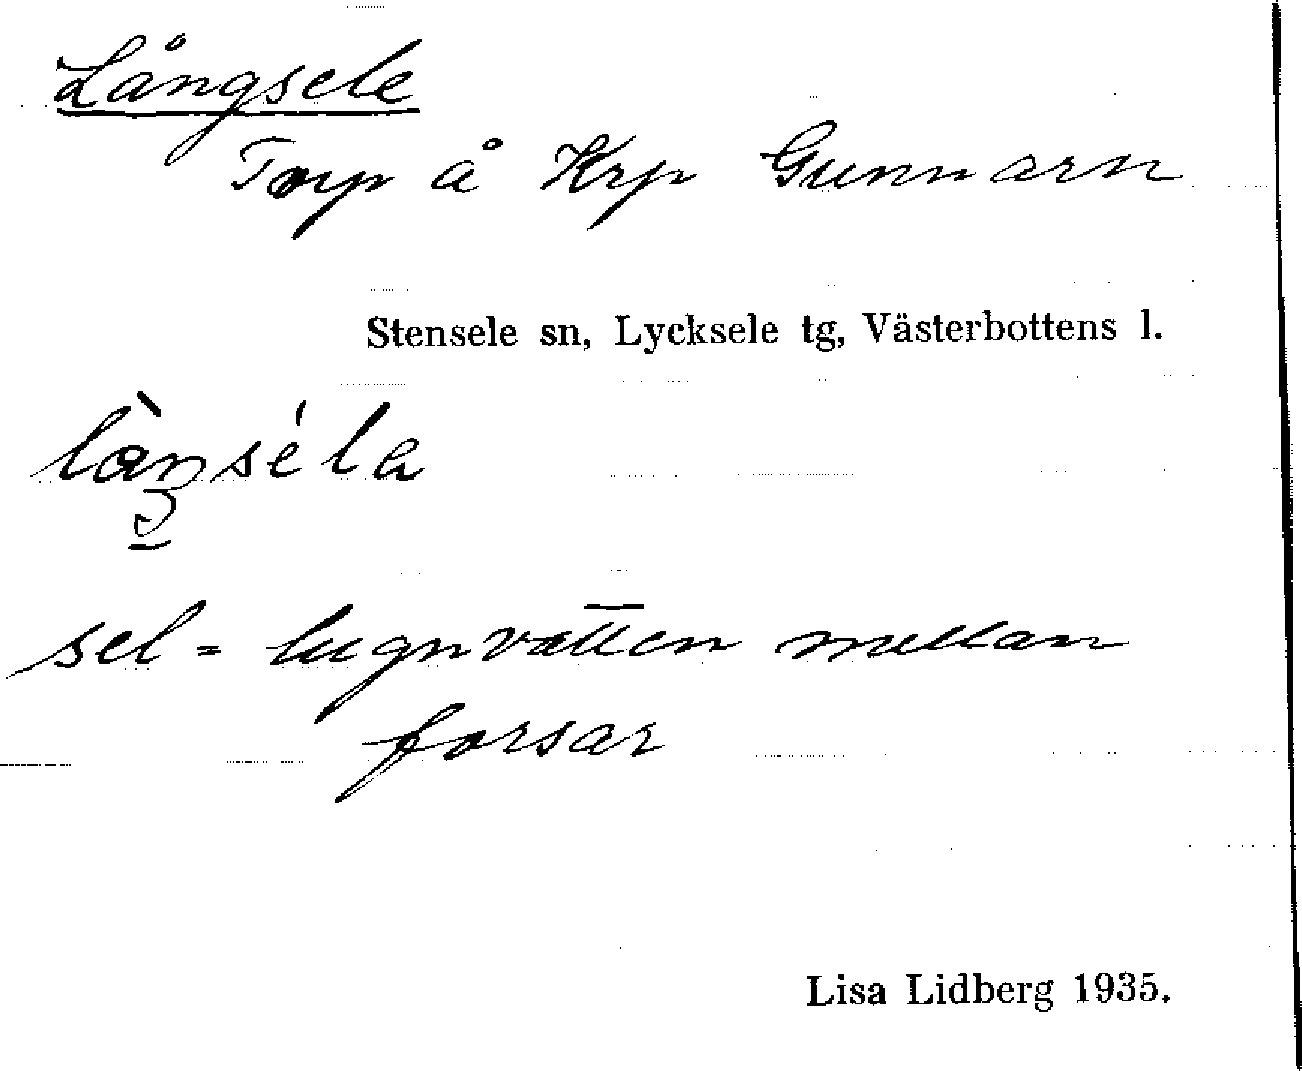 Långsele
Torp å Krp Gunnarn
Stensele sn, Lycksele tg, Västerbottens l.
sel = lugnvatten mellan
forsar
Lisa Lidberg 1935.